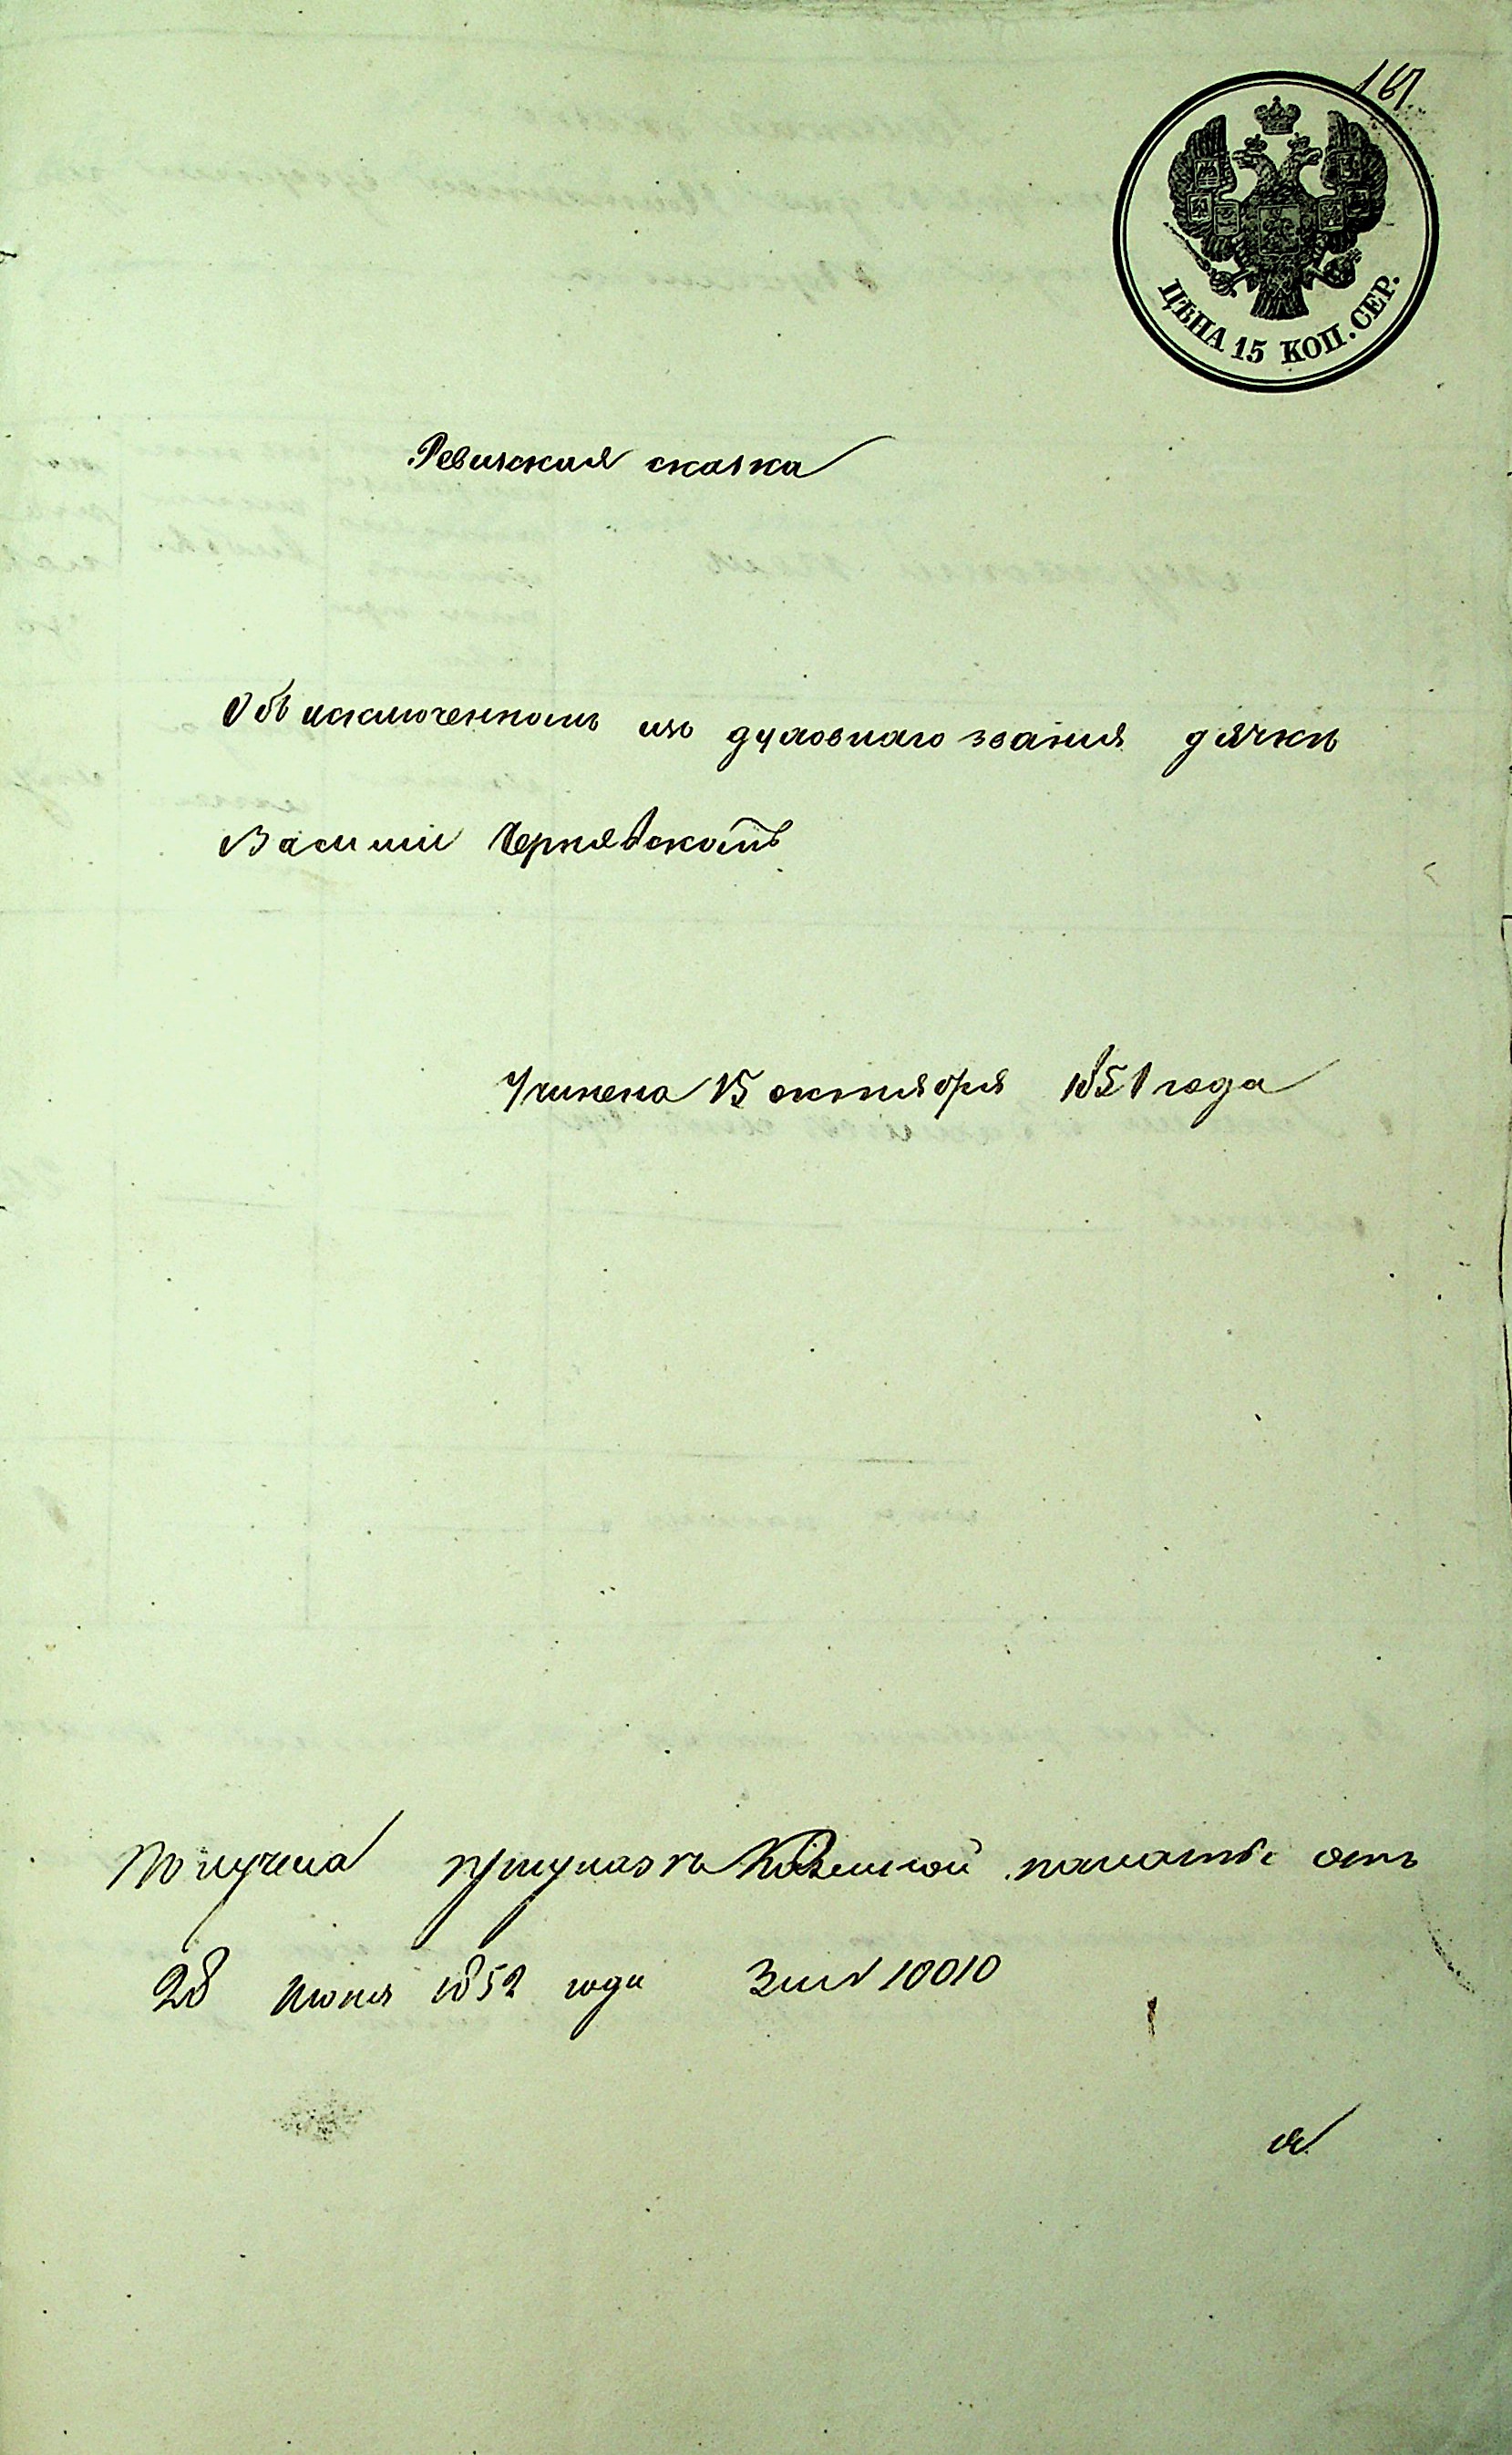 167
ЦѢНА 15 КОП. СЕР.
Ревизская сказка
Объ исключенномъ изъ духовнаго звания дячкѣ
Василии Чернявскомъ
Учинена 15 октября 1851 года
Получена при указѣ Казенной палаты отъ
28 июня 1852 года За № 10010